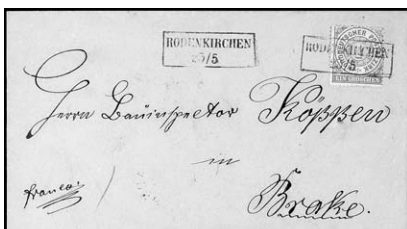 RODENKIRCHEN
25/5
RODENKIRCHEN
/5
EIN GROSCHEN
Herrn Bauinspector Köppen
in
franco.
Brake.